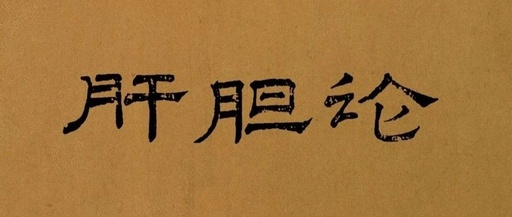 肝胆论